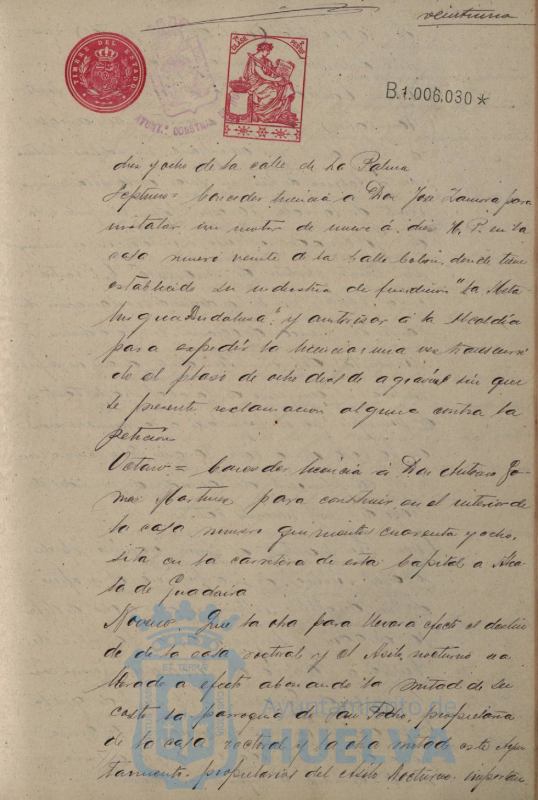 veintiuno
TIMBRE DEL ESTADO
CLASE
B.1.006.030*
diez y ocho de la calle de La Palma
Septimo = Conceder licencia á Don José Zamora para
instalar un motor de nueve á diez H. P. en la
casa numero veinte de la Calle Colon, donde tiene
establecido su industria de fundicion "La Meta-
lurgica Andaluza" y autorizar á la Alcaldía
para expedir la licencia una vez transcurri-
do el plazo de ocho dias de agravios sin que
se presente reclamacion alguna contra la
peticion
Octavo = Conceder licencia á Don Antonio Go-
mez Martinez para construir en el interior de
la casa numero quinientos cuarenta y ocho,
sita en la carretera de esta Capital a Alca-
la de Guadaira
Noveno. Que la obra para llevar á efecto el deslin-
de de la casa rectoral y el Asilo nocturno sea
llevada a efecto abonando la mitad de su
coste la parroquia de San Pedro, propietaria
de la casa rectoral y la otra mitad este Ayun-
tamiento propietarios del Asilo Nocturno. importan
Ayuntamiento de
HUELVA